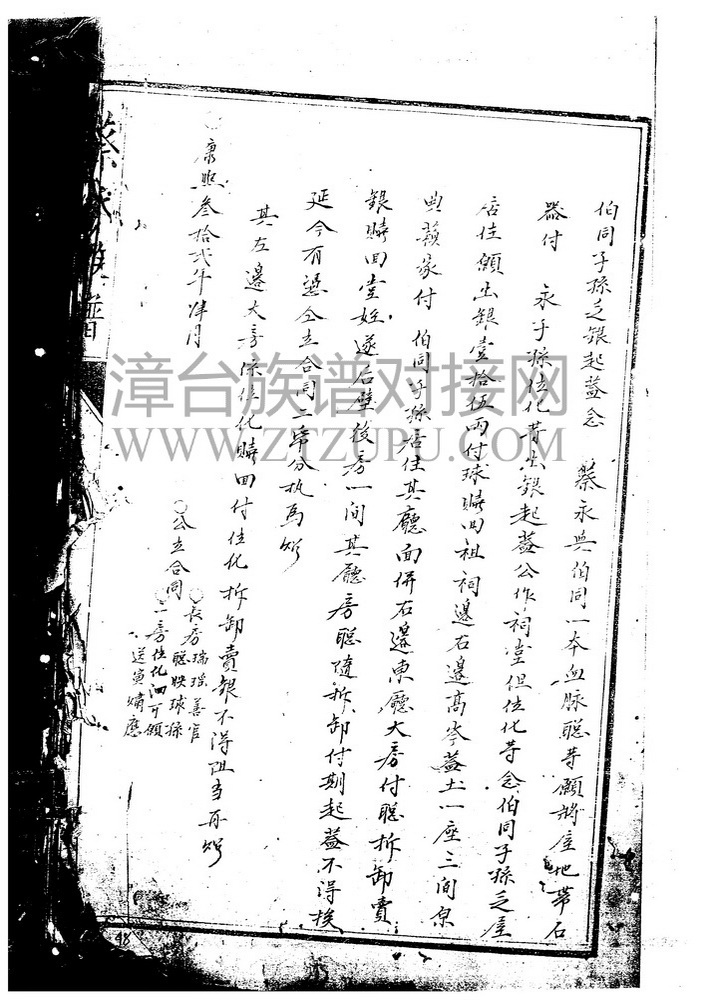 伯同子孫乏銀起蓋念 蔡永與伯同一本血脉聪等願將屋地帶石
器付 永子孫位化等出銀起蓋公作祠堂但位化等念伯同子孫乏屋
居住願出銀壹拾伍両付球贖回祖祠邊右邊高岑蓋土一座三間原
典蘇家付 伯同子孫居住其廳面併右邊東廳大房付聪拆卸賣
銀贖回堂 遂后壁後房一間其廳房聪隨拆卸付期起蓋不得挨
延今有憑仝立合同二帋分执為炤
其左邊大房係位化贖回付位化拆卸賣銀不得阻当再炤
○康熙叁拾弍年肆月
○公立合同
○長房瑞瑶善官
聪映球孫
○二房位化泗可願
送寅嘯應
蔡氏族譜
48
漳台族谱对接网
WWW.ZTZUPU.COM